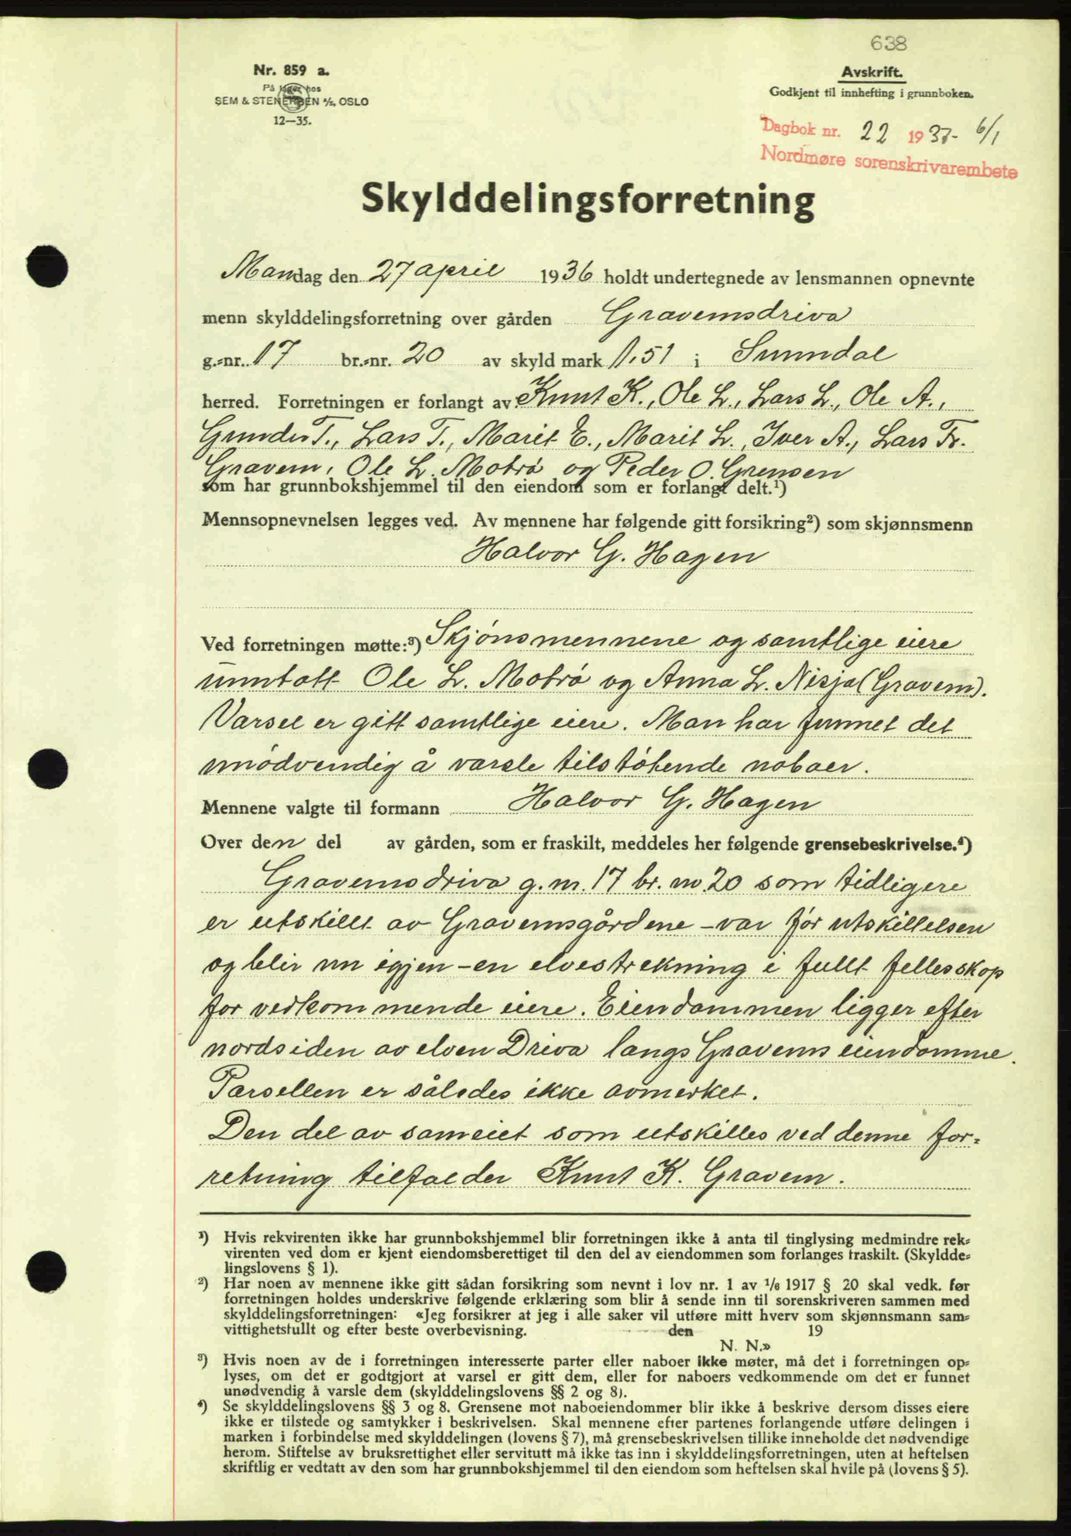 638
Nr. 859 a.
På lager hos
SEM & STENERSEN A/S, OSLO
12—35.
Avskrift.
Godkjent til innhefting i grunnboken.
Dagbok nr. 22 1937- 6/1
Nordmøre sorenskrivarembete
Skylddelingsforretning
Mandag den 27 april 1936 holdt undertegnede av lensmannen opnevnte
menn skylddelingsforretning over gården Gravemsdriva
g.-nr. 17 br.-nr. 20 av skyld mark 1,51 i Sunndal
herred. Forretningen er forlangt av: Knut K., Ole L., Lars L., Ole A.,
Gunder T., Lars T., Marit E., Marit L., Iver A., Lars Tr.
Gravem, Ole L. Mobrø og Peder O. Grensen
som har grunnbokshjemmel til den eiendom som er forlangt delt.¹)
Mennsopnevnelsen legges ved. Av mennene har følgende gitt forsikring²) som skjønnsmenn
Halvor G. Hagen
Ved forretningen møtte:³) Skjønsmennene og samtlige eiere
unntatt Ole L. Mobrø og Anna L. Nisja (Gravem).
Varsel er gitt samtlige eiere. Man har funnet det
unødvendig å varsle tilstøtende naboer.
Mennene valgte til formann Halvor G. Hagen
Over den del av gården, som er fraskilt, meddeles her følgende grensebeskrivelse.⁴)
Gravemsdriva g.nr. 17 br. nr. 20 som tidligere
er utskillt av Gravemsgårdene – var før utskillelsen
og blir nu igjen – en elvestrekning i fullt fellesskap
for vedkommende eiere. Eiendommen ligger efter
nordsiden av elven Driva langs Gravems eiendomme.
Parsellen er således ikke avmerket.
Den del av sameiet som utskilles ved denne for-
retning tilfalder Knut K. Gravem.
¹) Hvis rekvirenten ikke har grunnbokshjemmel blir forretningen ikke å anta til tinglysing medmindre rek-
virenten ved dom er kjent eiendomsberettiget til den del av eiendommen som forlanges fraskilt. (Skyldde-
lingslovens § 1).
²) Har noen av mennene ikke gitt sådan forsikring som nevnt i lov nr. 1 av 1/6 1917 § 20 skal vedk. før
forretningen holdes underskrive følgende erklæring som blir å sende inn til sorenskriveren sammen med
skylddelingsforretningen: «Jeg forsikrer at jeg i alle saker vil utføre mitt hverv som skjønnsmann sam-
vittighetsfullt og efter beste overbevisning. den 19
N. N.»
³) Hvis noen av de i forretningen interesserte parter eller naboer ikke møter, må det i forretningen op-
lyses, om det er godtgjort at varsel er gitt dem, eller for naboers vedkommende om det er funnet
unødvendig å varsle dem (skylddelingslovens §§ 2 og 8).
⁴) Se skylddelingslovens §§ 3 og 8. Grensene mot naboeiendommer blir ikke å beskrive dersom disses eiere
ikke er tilstede og samtykker i beskrivelsen. Skal mennene efter partenes forlangende utføre delingen i
marken i forbindelse med skylddelingen (lovens § 7), må grensebeskrivelsen tillike inneholde det nødvendige
herom. Stiftelse av bruksrettighet eller servitutt må ikke tas inn i skylddelingsforretningen, uten at heftelsen
skriftlig er vedtatt av den som har grunnbokshjemmel til den eiendom som heftelsen skal hvile på (lovens § 5).